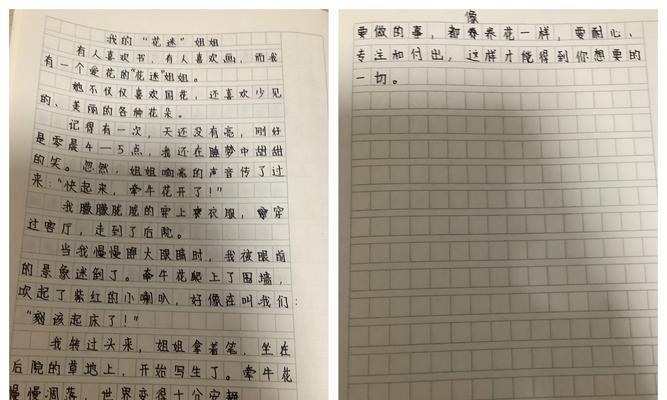 我的“花迷”姐姐
有人喜欢书，有人喜欢画，而我
有一个爱花的“花迷”姐姐。
她不仅仅喜欢国花，还喜欢少见
的、美丽的各种花朵。
记得有一次，天还没有亮，刚好
是零晨4—5点，我还在睡梦中甜甜
的笑。忽然，姐姐响亮的声音传了过
来：“快起来，牵牛花开了！”
我朦朦胧胧的穿上衣服，穿
过客厅，走到了后院。
当我慢慢睁大眼睛时，我被眼前
的景象迷倒了。牵牛花爬上了围墙，
吹起了紫红的小喇叭，好像在叫我们：
“该起床了！”
我转过头来，姐姐拿着笔，坐在
后院的草地上，开始写生了。牵牛花
慢慢凋落，世界变得十分安
像
要做的事，都养花一样，要耐心、
专注和付出，这样才能得到你想要的
一切。